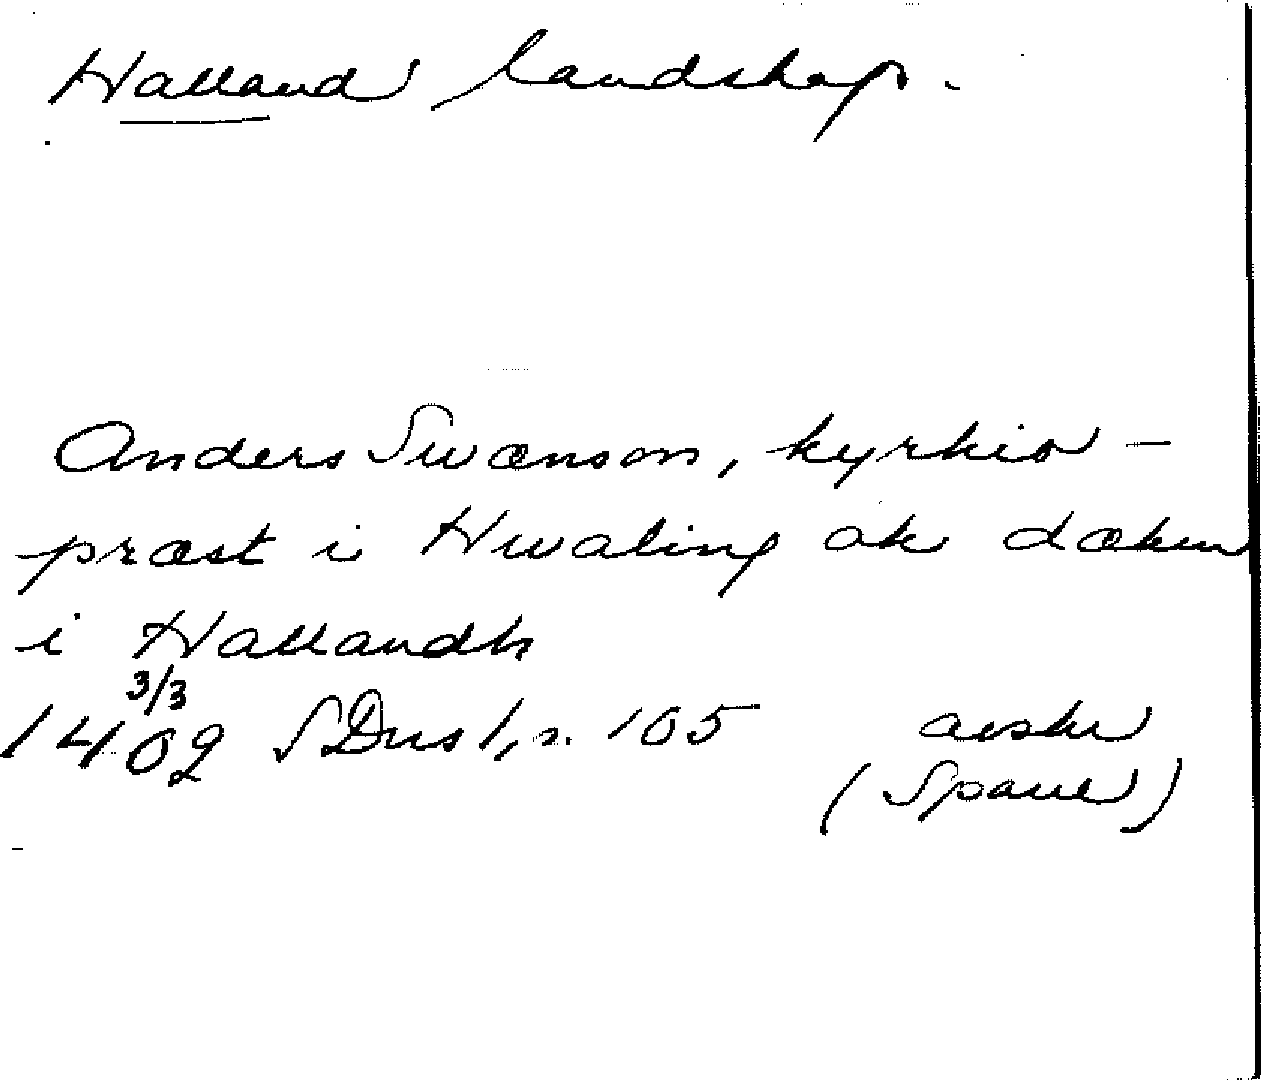 Halland landskap.
Anders Swænson, kyrkio-
præst i Hwaling ok dækn
i Hallandh
3/3
1402 SDns 1, s. 105 avskr
(Spare)